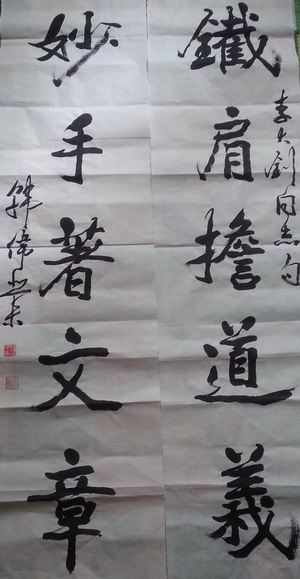 鐵肩擔道義
李大釗同志句
妙手著文章
韓偉